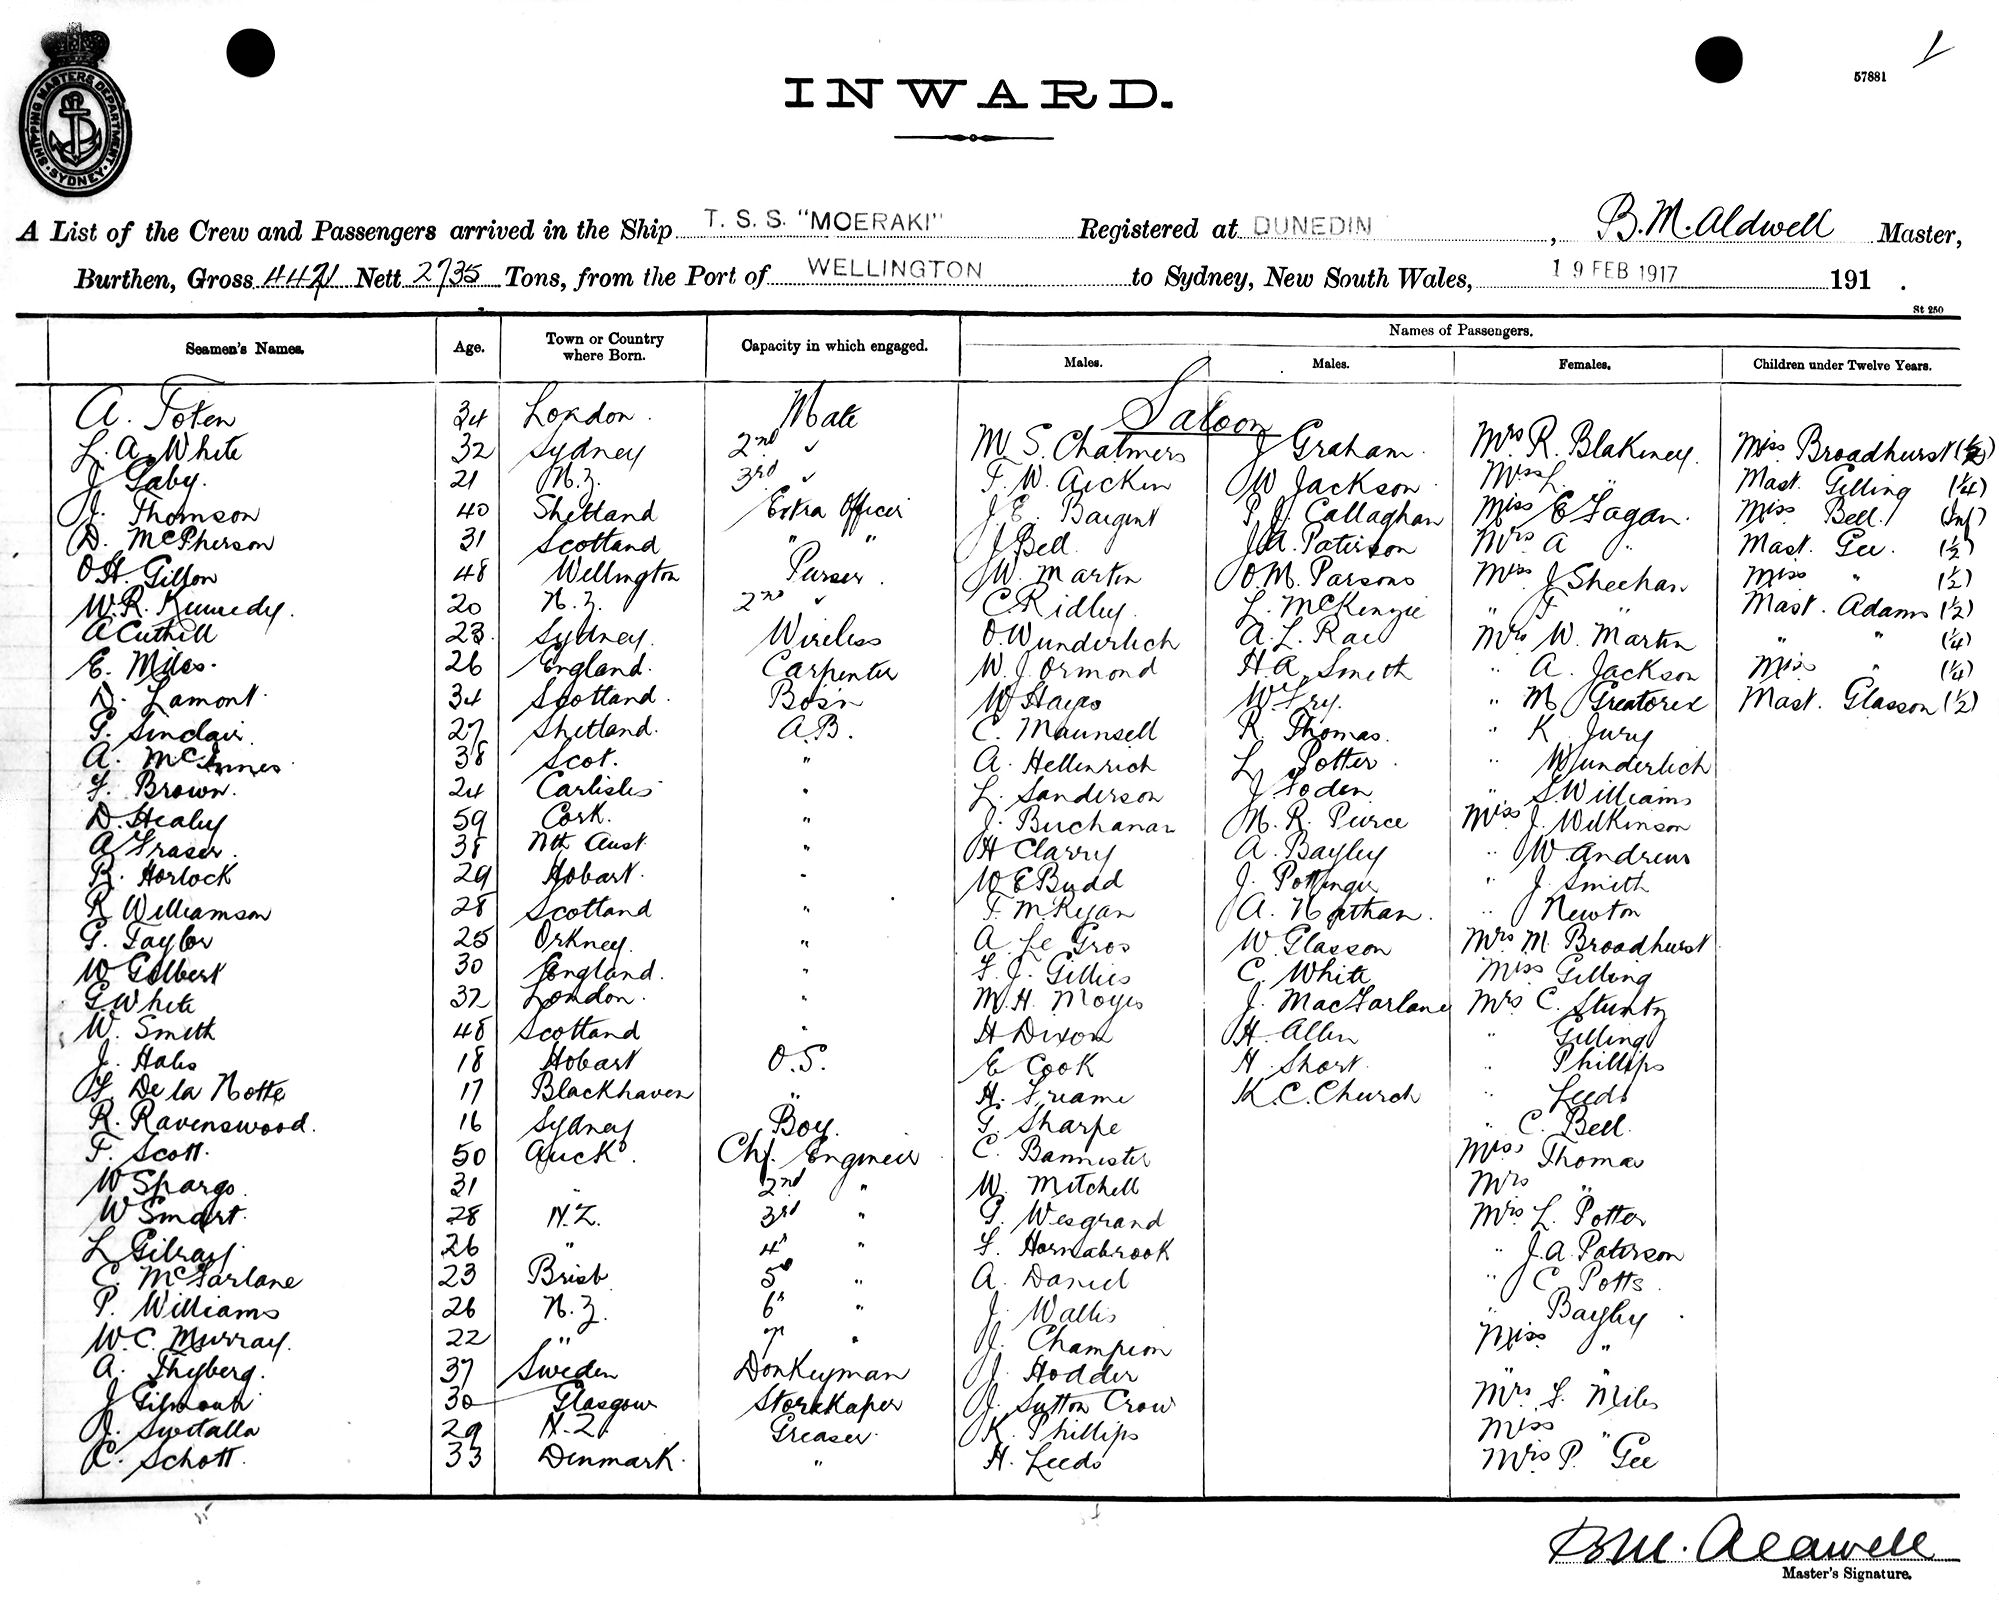 SHIPPING MASTERS DEPARTMENT
SYDNEY
57881
INWARD.
A List of the Crew and Passengers arrived in the Ship T. S. S. "MOERAKI" Registered at DUNEDIN, B. M. Aldwell Master,
Burthen, Gross 4421 Nett 2735 Tons, from the Port of WELLINGTON to Sydney, New South Wales, 19 FEB 1917 191 .
St 250
Seamen's Names. Age. Town or Country where Born. Capacity in which engaged. Names of Passengers.
Males. Males. Females. Children under Twelve Years.
Saloon
A. Token 34 London. Mate
L. A. White 32 Sydney 2nd " M. S. Chalmers J Graham. Mrs R. Blakeney. Miss Broadhurst (½)
J Gaby. 21 N.Z. 3rd " F. W. Aicken W Jackson Miss L. " Mast. Gilling (¼)
J. Thomson 40 Shetland Extra Officer J E. Bargent P. J. Callaghan Miss E Fagan. Miss Bell. (Inf)
D. McPherson 31 Scotland " " J Bell. J A. Paterson Mrs A " Mast. Gee. (½)
O H. Gillon 48 Wellington Purser. W. Martin O. M. Parsons Miss J Sheehan Miss " (½)
W. R. Kennedy. 20 N.Z. 2nd " C Ridley. L. McKenzie " F " Mast. Adams (½)
A Cuthill 23. Sydney. Wireless O. Wunderlich A. L. Rae Mrs W. Martin " " (¼)
E. Miles. 26 England. Carpenter W. J. Ormond H. A. Smith " A. Jackson Miss " (¼)
D. Lamont. 34 Scotland. Bosn W Hayes W Fry. " M Greatorex Mast. Glasson (½)
G. Sinclair. 27 Shetland. A.B. C. Maunsell R. Thomas. " K Jury
A. McInnes 38 Scot. " A. Hellenrich L Potter. " Wunderlich
F. Brown. 24 Carlisle " L. Sanderson J Foden " S. Williams
D. Healy 59 Cork. " J. Buchanan M. R. Pierce Miss J. Wilkinson
A Fraser. 38 Nth Aust. " H Clarry A. Bayley " W. Andrew
R. Horlock 29 Hobart. " W E Budd J. Pottinger " J. Smith
R Williamson 28 Scotland " F. M. Ryan A. Nathan. " Newton
G. Taylor 25 Orkney. " A. Le Gros W Glasson Mrs M. Broadhurst
W Gilbert 30 England. " F. J. Gillies C. White Miss Gilling
G White 32 London. " M. H. Moyes J. MacFarlane Mrs C.
W. Smith 48 Scotland " H Dixon H. Allen " Gilling
J. Hales 18 Hobart O.S. E Cook H. Short. " Phillips
F. De la Notte 17 Blackhaven " H. Freame K. C. Church " Leeds
R. Ravenswood. 16 Sydney Boy. G. Sharpe " C. Bell.
F. Scott. 50 Auckd. Chf. Engineer C. Bannister Miss Thomas
W Spargo. 31 " 2nd " W. Mitchell Mrs "
W Smart. 28 N.Z. 3rd " G. Wesgrand Mrs L. Potter
L Gilray. 26 " 4" " F. Hornabrook " J. A. Paterson
C. McFarlane 23 Brisb 5" " A. Daniel " C Potts.
P. Williams 26 N.Z. 6" " J. Wallis " Bayley
W. C. Murray. 22 " 7" " J. Champion Miss "
A. Thyberg. 37 Sweden Donkeyman J. Hodder " "
J Gilmour 30 Glasgow Storekeeper J. Sutton Crow Mrs F. Miles
J. Switalla 29 N.Z. Greaser. K. Phillips Miss "
C. Schott. 33 Denmark. " H. Leeds Mrs P. Gee
B M. Aldwell
Master's Signature.